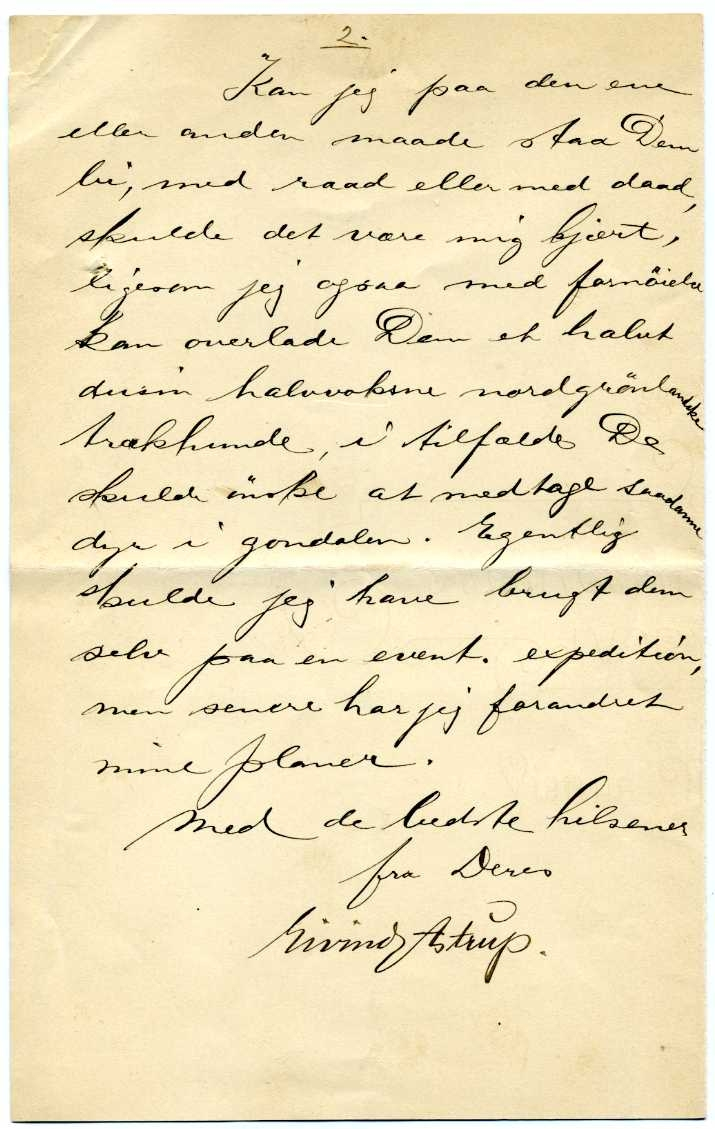 2.
Kan jeg paa den ene
eller anden maade staa Dem
bi, med raad eller med daad,
skulde det være mig kjært,
ligesom jeg ogsaa med fornöielse
kan overlade Dem et halvt
dusin halvvoksne nordgrönlandske
trækhunde, i tilfælde De
skulde önske at medtage saadanne
dyr i gondolen. Egentlig
skulde jeg have brugt dem
selv paa en event. expedition,
men senere har jeg forandret
mine planer.
Med de bedste hilsener
fra Deres
Eivind Astrup.